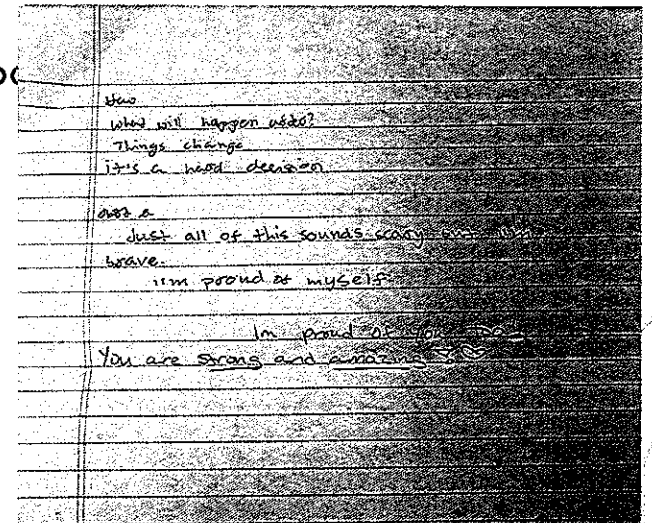 How
what will happen
Things change
it's a hard decision
Just all of this sounds scary but I'm
brave.
i'm proud of myself
Im proud of you too
You are strong and amazing